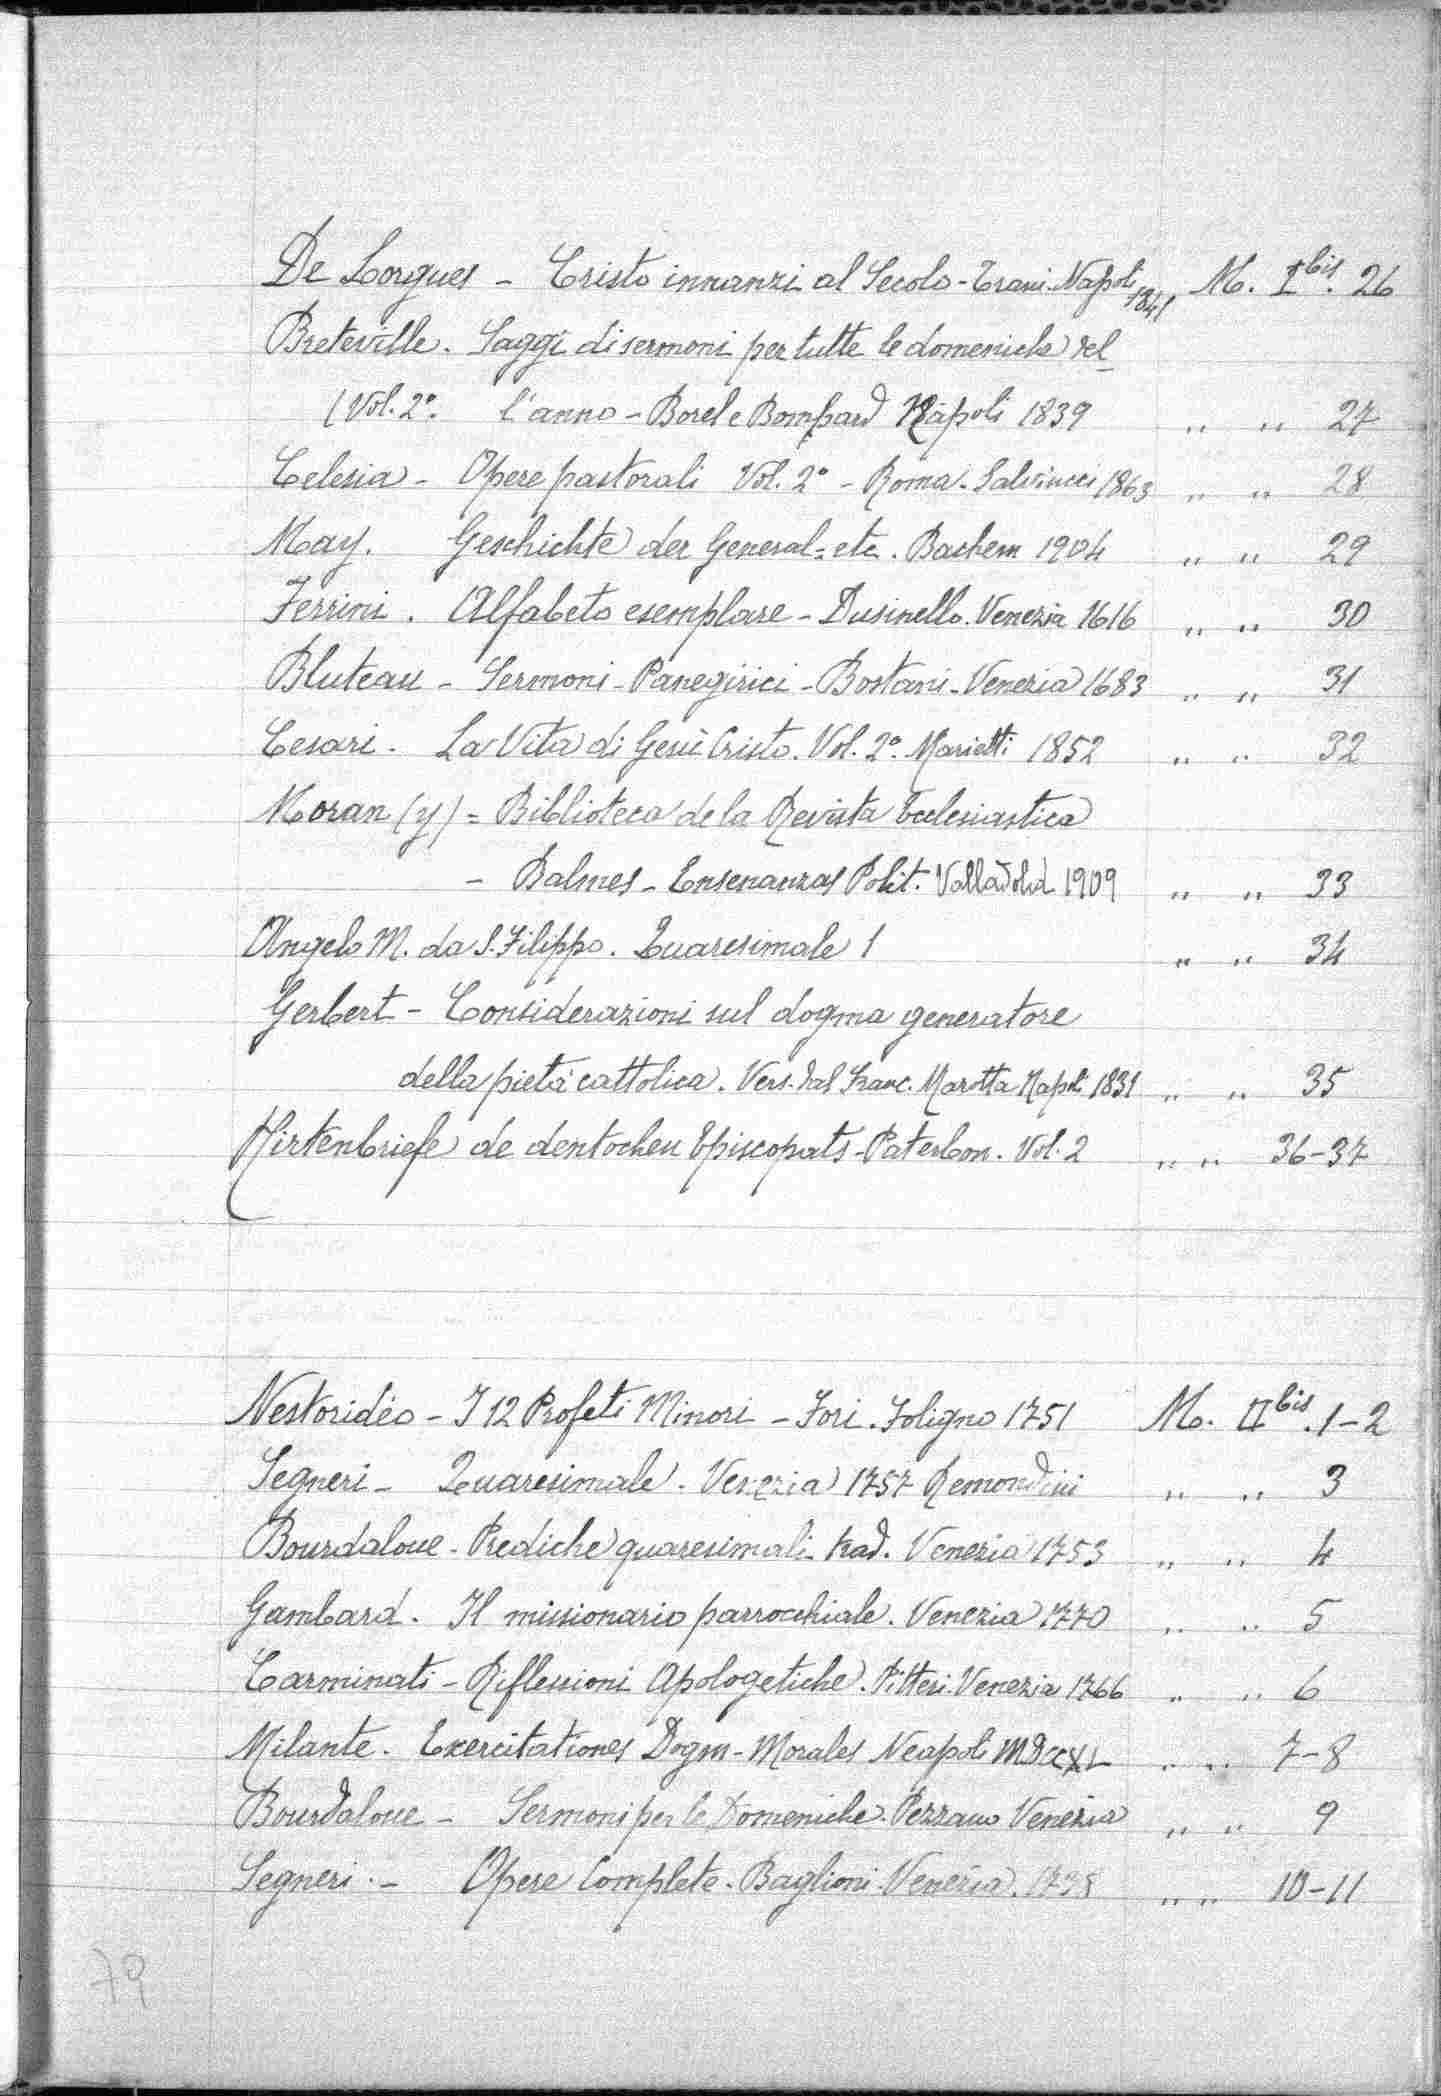 De Lorgues - Cristo innanzi al Secolo - Trani. Napoli 1841 M. I bis. 26
Breteville. Saggi di sermoni per tutte le domeniche del
(Vol. 2º. l'anno - Borel e Bompard Napoli 1839 " " 27
Celesia - Opere pastorali Vol. 2º - Roma. Salviucci 1863 " " 28
May. Geschichte der General = etc. Bachem 1904 " " 29
Ferrini. Alfabeto esemplare - Dusinello. Venezia 1616 " " 30
Bluteau - Sermoni - Panegirici - Bostani - Venezia 1683 " " 31
Cesari. La Vita di Gesù Cristo. Vol. 2º. Marietti 1852 " " 32
Moran (y) = Biblioteca de la Revista Ecclesiastica
- Balmes - Ensenanzas Polit. Valladolid 1909 " " 33
Angelo M. da S. Filippo. Quaresimale 1 " " 34
Gerbert - Considerazioni sul dogma generatore
della pietà cattolica. Vers. dal Franc. Marotta Napoli 1831 " " 35
Hirtenbriefe de dentochen Episcopats - Paterbon. Vol. 2 " " 36-37
Nestoridéo - I 12 Profeti Minori - Fori. Foligno 1751 M. II bis. 1-2
Segneri - Quaresimale. Venezia 1757 Remondini " " 3
Bourdaloue - Prediche quaresimali trad. Venezia 1753 " " 4
Gambard. Il missionario parrocchiale. Venezia 1770 " " 5
Carminati - Riflessioni Apologetiche. Pitteri. Venezia 1766 " " 6
Milante. Exercitationes Dogm - Morales Neapoli MDCCXL " " 7-8
Bourdaloue - Sermoni per le Domeniche. Pezzano Venezia " " 9
Segneri. - Opere Complete. Baglioni. Venezia. 1738 " " 10-11
79